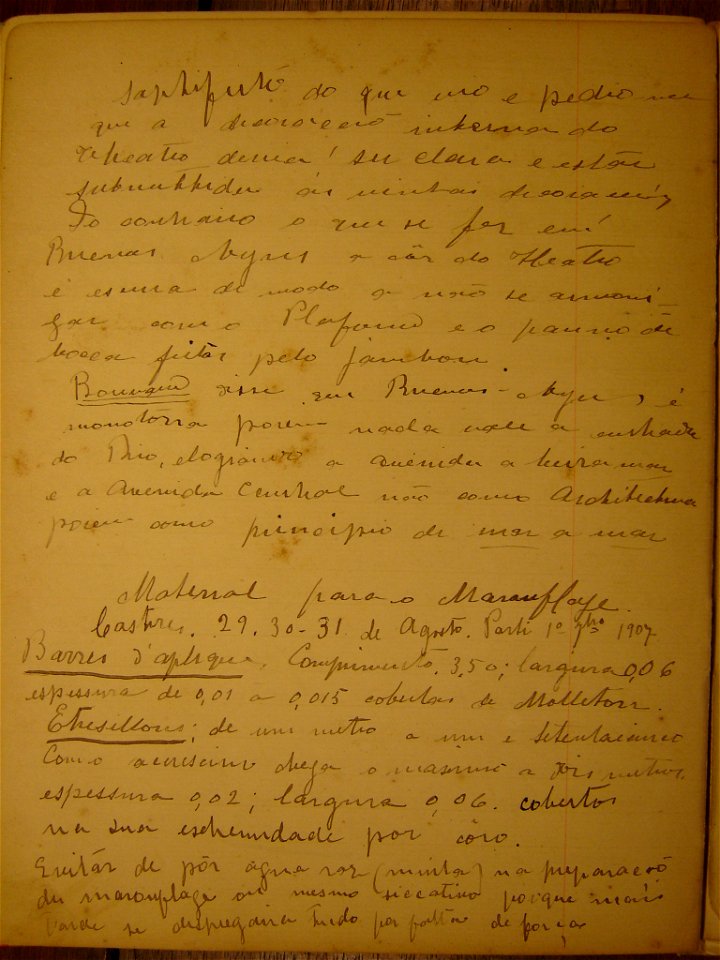 do que viu e pedio-me
que a decoração interna do
Theatro devia ser clara e estar
submettida ás minhas decorações
Do contrario o que se fez em
Buenos Ayres a côr do Theatro
é escura de modo a não se armoni-
zar com o Plafond e o panno de
bocca feitos pelo Jambon.
disse que Buenos-Ayres, é
monotona porem nada vale a entrada
do Rio, elogiando a avenida a beira mar
e a Avenida Central não como Architectura
porem como principio de mar a mar
Material para o Marouflage.
Castres. 29. 30-31 de Agosto. Parti 1º 7bro 1907
Barres d'aplique. Comprimento. 3,50; largura 0,06
espessura de 0,01 a 0,015 cobertas de Molleton.
Etresillons; de um metro a um e setentacinco
Como acrescimo chega o maximo a dois metros.
espessura 0,02; largura 0,06. cobertos
na sua extremidade por côro.
Evitár de pôr agua raz (muita) na preparação
du marouflage ou mesmo siccativo porque mais
tarde se despregaria tudo por falta de forças